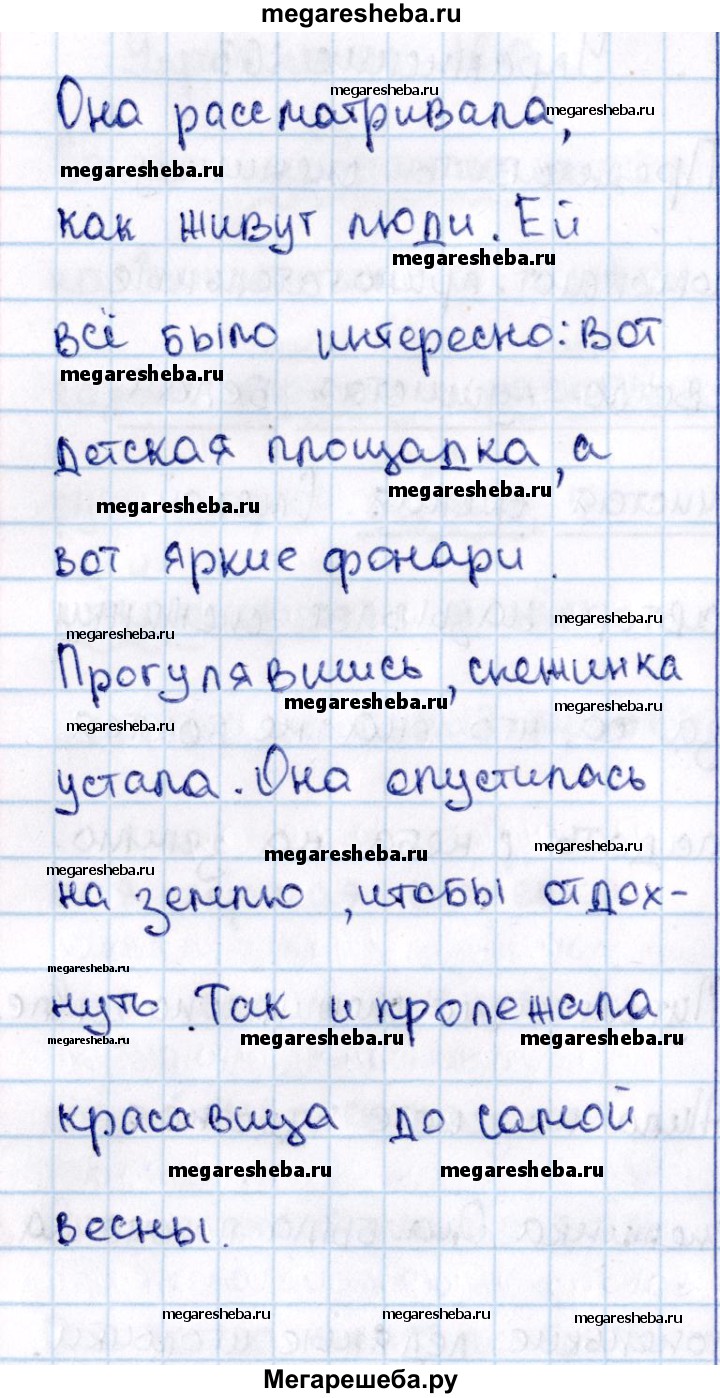 megaresheba.ru
Она рассматривала,
megaresheba.ru
megaresheba.ru
megaresheba.ru
как живут люди. Ей
megaresheba.ru
всё было интересно: вот
megaresheba.ru
детская площадка, а
megaresheba.ru
megaresheba.ru
вот яркие фонари.
megaresheba.ru
Прогулявшись, снежинка
megaresheba.ru
megaresheba.ru
megaresheba.ru
устала. Она опустилась
megaresheba.ru
megaresheba.ru
megaresheba.ru
на землю, чтобы отдох-
megaresheba.ru
нуть. Так и пролежала
megaresheba.ru
megaresheba.ru
megaresheba.ru
красавица до самой
megaresheba.ru
megaresheba.ru
весны.
megaresheba.ru
megaresheba.ru
megaresheba.ru
Мегарешеба.ру